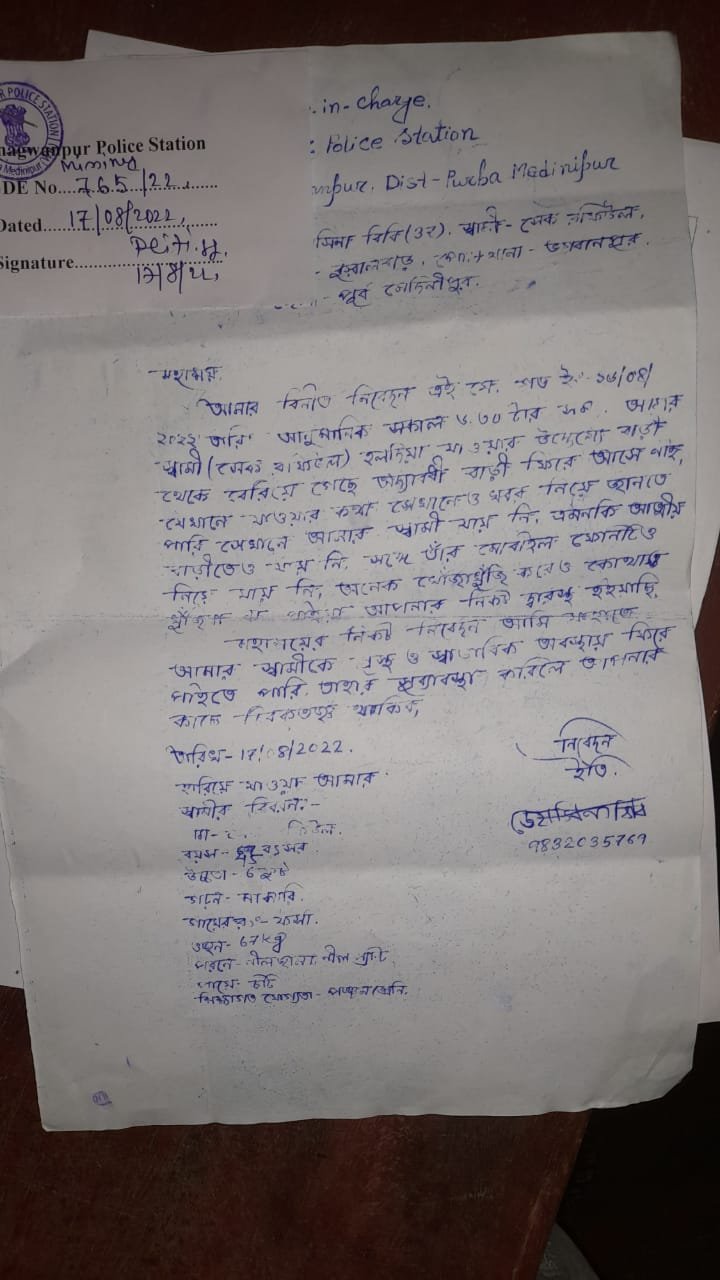 R POLICE STATION
Bhagwanpur Police Station
Missing
DE No....765/22........
Dated....17/08/2022........
Signature........................
in-charge.
Police Station
Dist- Purba Medinipur
বিবি(৩২), স্বামী- সেক
থানা- ভগবানপুর.
পূর্ব মেদিনীপুর.
মহাশয়,
আমার বিনীত নিবেদন এই যে, গত ইং- ১৬/০৪/
২০২২ তারি আনুমানিক সকাল ৬.৩০ টার সময়. আমার
স্বামী (সেক ) হলদিয়া যাওয়ার উদ্দেশ্যে বাড়ী
থেকে বেরিয়ে গেছে অদ্যাবধী বাড়ী ফিরে আসে নাই,
যেখানে যাওয়ার কথা সেখানেও খবর নিয়ে জানতে
পারি সেখানে আমার স্বামী যায় নি, এমনকি আত্মীয়
বাড়ীতেও যায় নি. সঙ্গে তাঁর মোবাইল ফোনটিও
নিয়ে যায় নি, অনেক খোঁজাখুঁজি করেও কোথায়
আপনার নিকট দ্বারস্থ হইয়াছি.
মহাশয়ের নিকট নিবেদন আমি যাহাতে
আমার স্বামীকে সুস্থ ও স্বাভাবিক অবস্থায় ফিরে
পাইতে পারি. তাহার সুব্যাবস্থা করিলে আপনার
কাছে থাকিব,
তারিখ- 17/08/2022.
নিবেদন
ইতি.
হারিয়ে যাওয়া আমার
স্বামীর বিবরন:-
9832035769
বয়স- বৎসর
উচ্চতা- 6 ফুট
গড়ন- মাঝারি.
গায়ের রং- ফর্সা.
ওজন- 67kg
পরনে- নীল জামা, নীল প্যান্ট
পায়ে- চটি
শিক্ষাগত যোগ্যতা- পঞ্চম শ্রেনি.